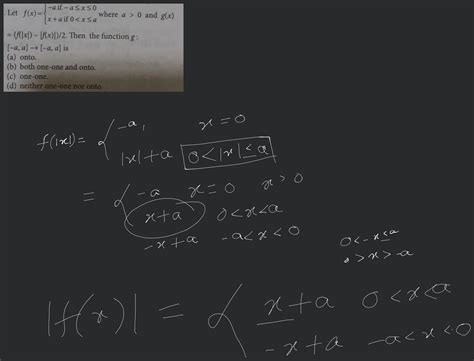 . Let f(x)= { -a if -a ≤ x ≤ 0
x + a if 0 < x ≤ a where a > 0 and g(x)
= (f(|x|) - |f(x)|)/2. Then the function g :
[-a, a] → [-a, a] is
(a) onto.
(b) both one-one and onto.
(c) one-one.
(d) neither one-one nor onto.
f(|x|) = { -a, x = 0
|x| + a 0 < |x| ≤ a
= { -a x = 0 x > 0
x + a 0 < x < a
-x + a -a < x < 0
0 < -x ≤ a
0 > x > -a
|f(x)| = { x + a 0 < x < a
-x + a -a < x < 0